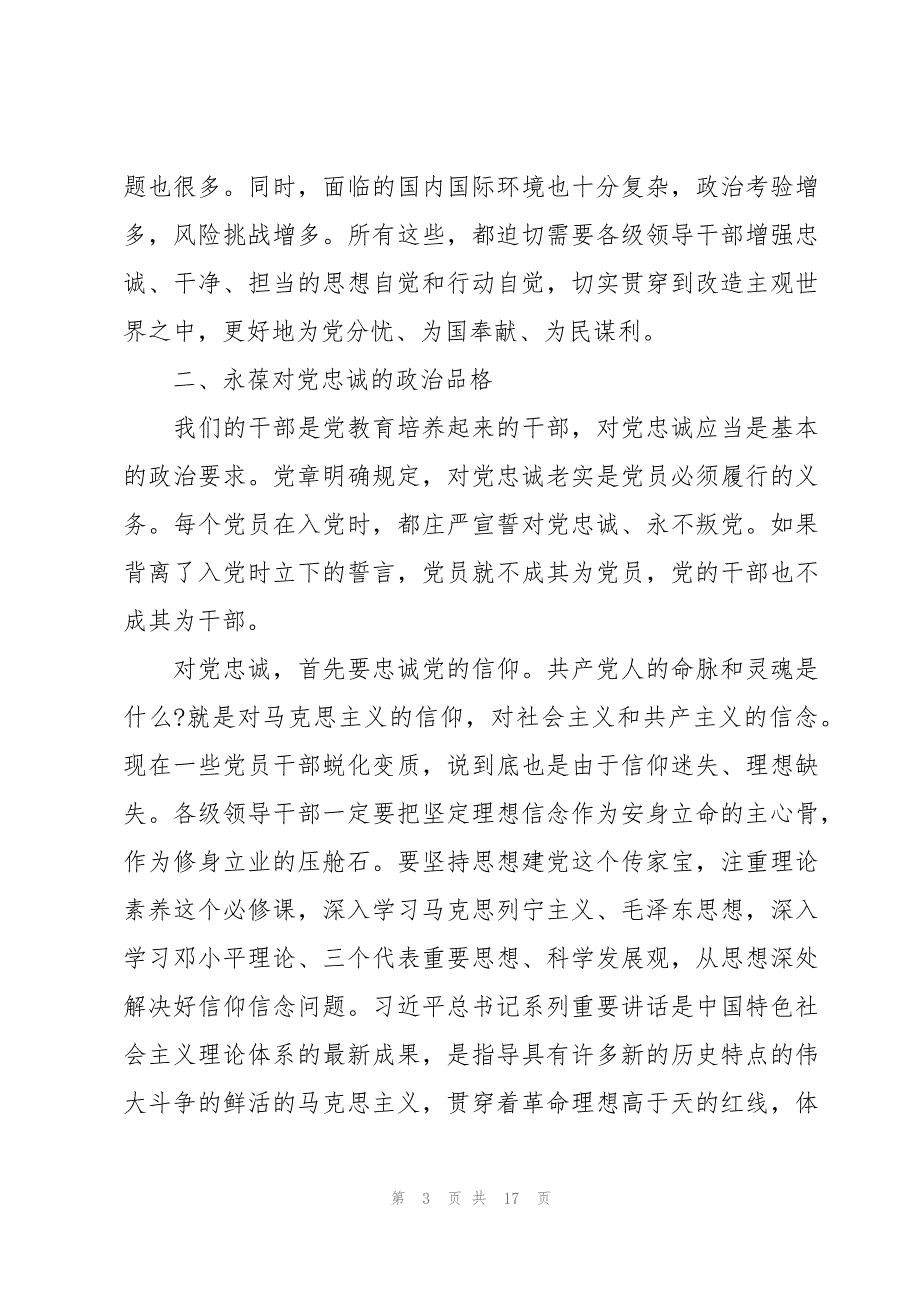 题也很多。同时，面临的国内国际环境也十分复杂，政治考验增
多，风险挑战增多。所有这些，都迫切需要各级领导干部增强忠
诚、干净、担当的思想自觉和行动自觉，切实贯穿到改造主观世
界之中，更好地为党分忧、为国奉献、为民谋利。
二、永葆对党忠诚的政治品格
我们的干部是党教育培养起来的干部，对党忠诚应当是基本
的政治要求。党章明确规定，对党忠诚老实是党员必须履行的义
务。每个党员在入党时，都庄严宣誓对党忠诚、永不叛党。如果
背离了入党时立下的誓言，党员就不成其为党员，党的干部也不
成其为干部。
对党忠诚，首先要忠诚党的信仰。共产党人的命脉和灵魂是
什么?就是对马克思主义的信仰，对社会主义和共产主义的信念。
现在一些党员干部蜕化变质，说到底也是由于信仰迷失、理想缺
失。各级领导干部一定要把坚定理想信念作为安身立命的主心骨，
作为修身立业的压舱石。要坚持思想建党这个传家宝，注重理论
素养这个必修课，深入学习马克思列宁主义、毛泽东思想，深入
学习邓小平理论、三个代表重要思想、科学发展观，从思想深处
解决好信仰信念问题。习近平总书记系列重要讲话是中国特色社
会主义理论体系的最新成果，是指导具有许多新的历史特点的伟
大斗争的鲜活的马克思主义，贯穿着革命理想高于天的红线，体
第 3 页 共 17 页